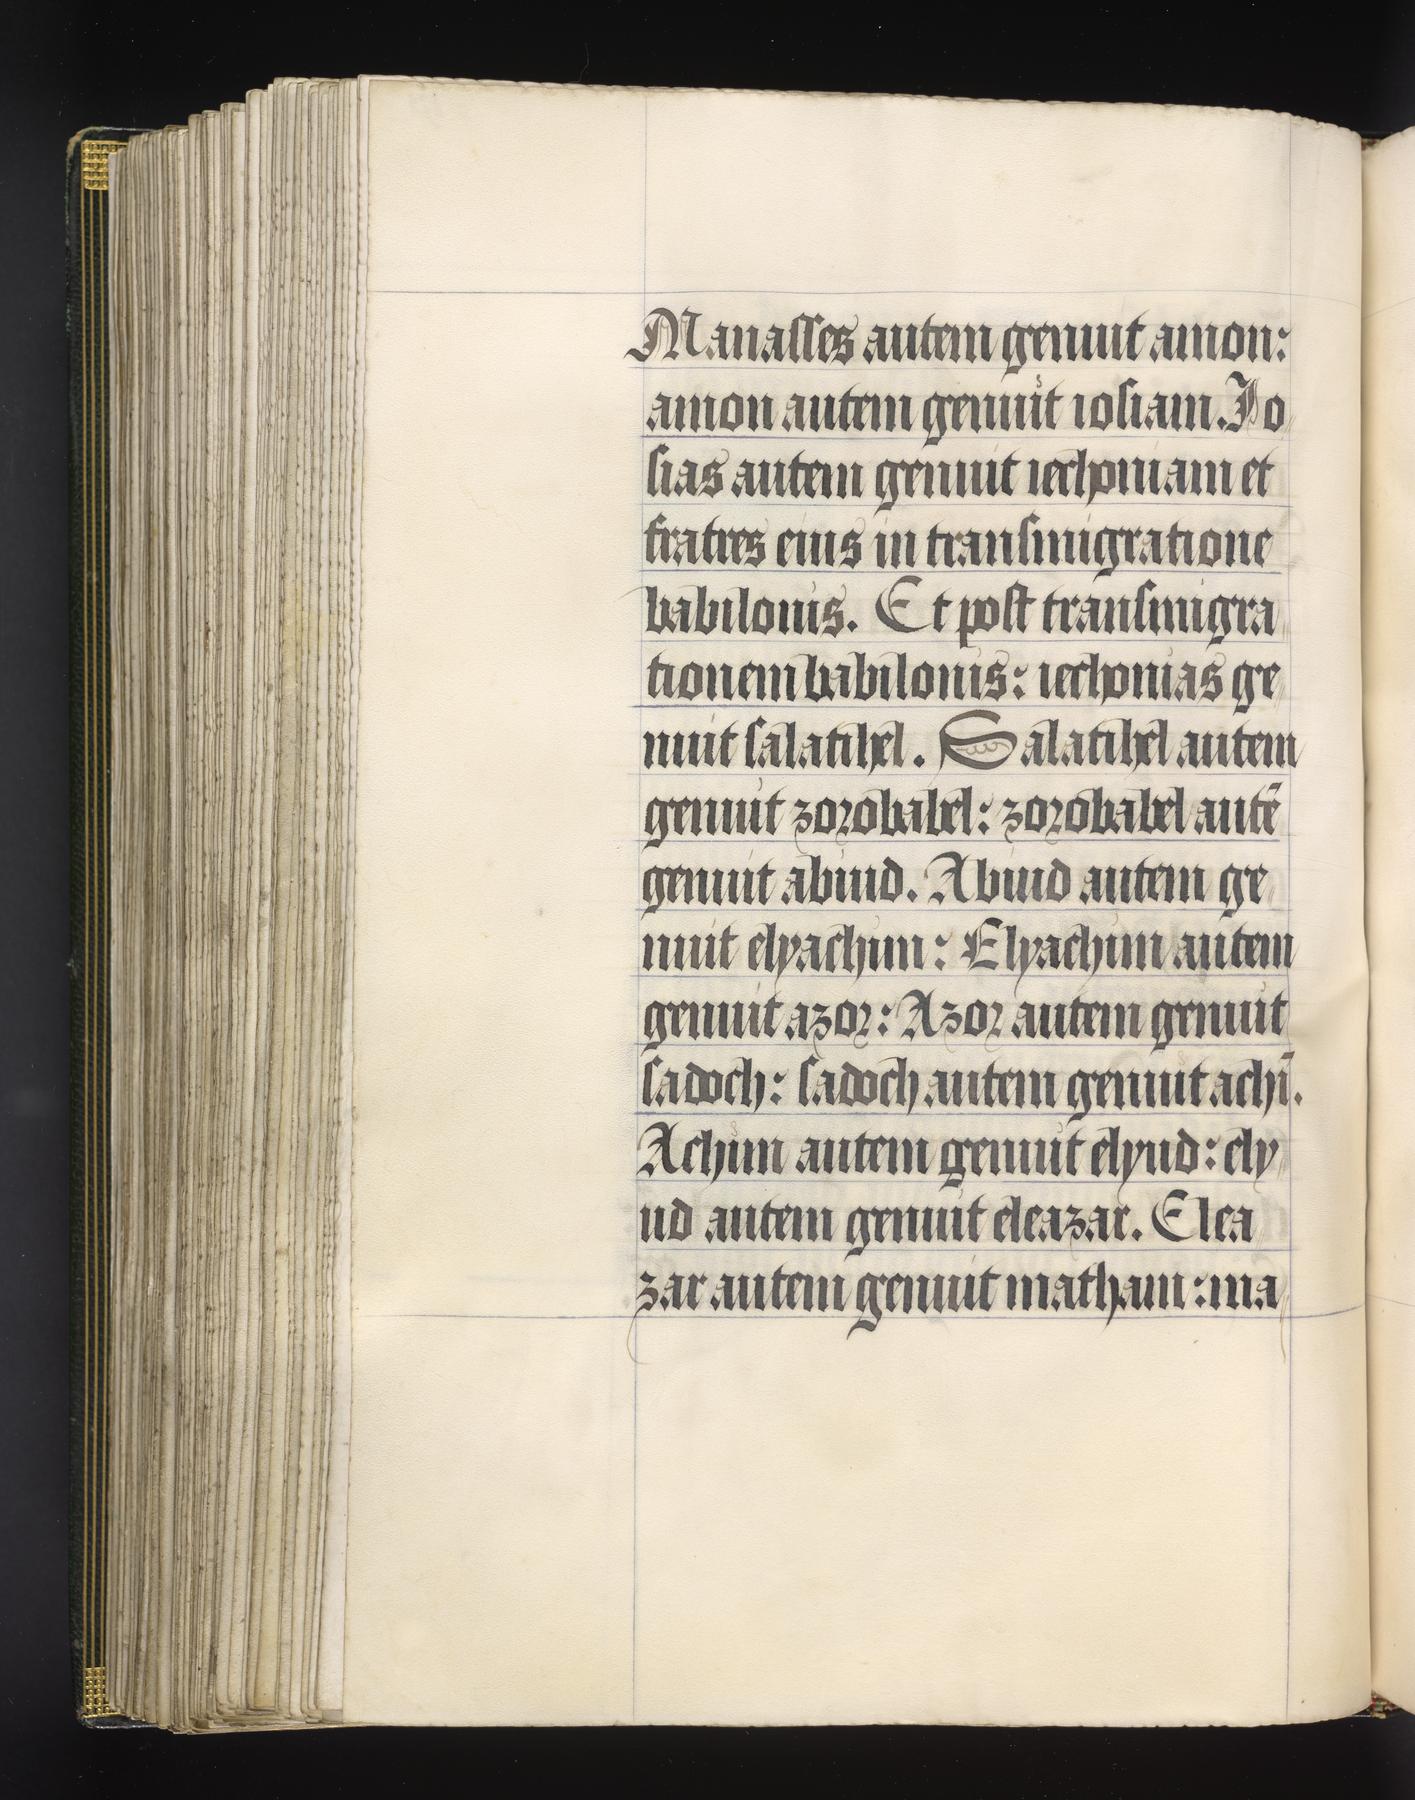 Manasses autem genuit amon:
amon autem genuit iosiam. Io
sias autem genuit iechoniam et
fratres eius in transmigratione
babilonis. Et post transmigra
tionem babilonis: iechonias ge
nuit salatihel. Salatihel autem
genuit zorobabel: zorobabel autē
genuit abiud. Abiud autem ge
nuit elyachim: Elyachim autem
genuit azor: Azor autem genuit
sadoch: sadoch autem genuit achī.
Achim autem genuit elyud: ely
ud autem genuit eleazar. Elea
zar autem genuit matham: ma